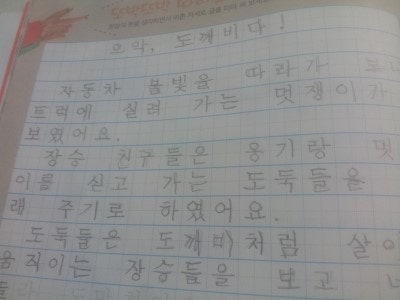 으악, 도깨비다!
자동차 불빛을 따라가 보니
트럭에 실려 가는 멋쟁이가
보였어요.
장승 친구들은 옹기랑 멋
이를 싣고 가는 도둑들을
래 주기로 하였어요.
도둑들은 도깨비처럼 살아
움직이는 장승들을 보고